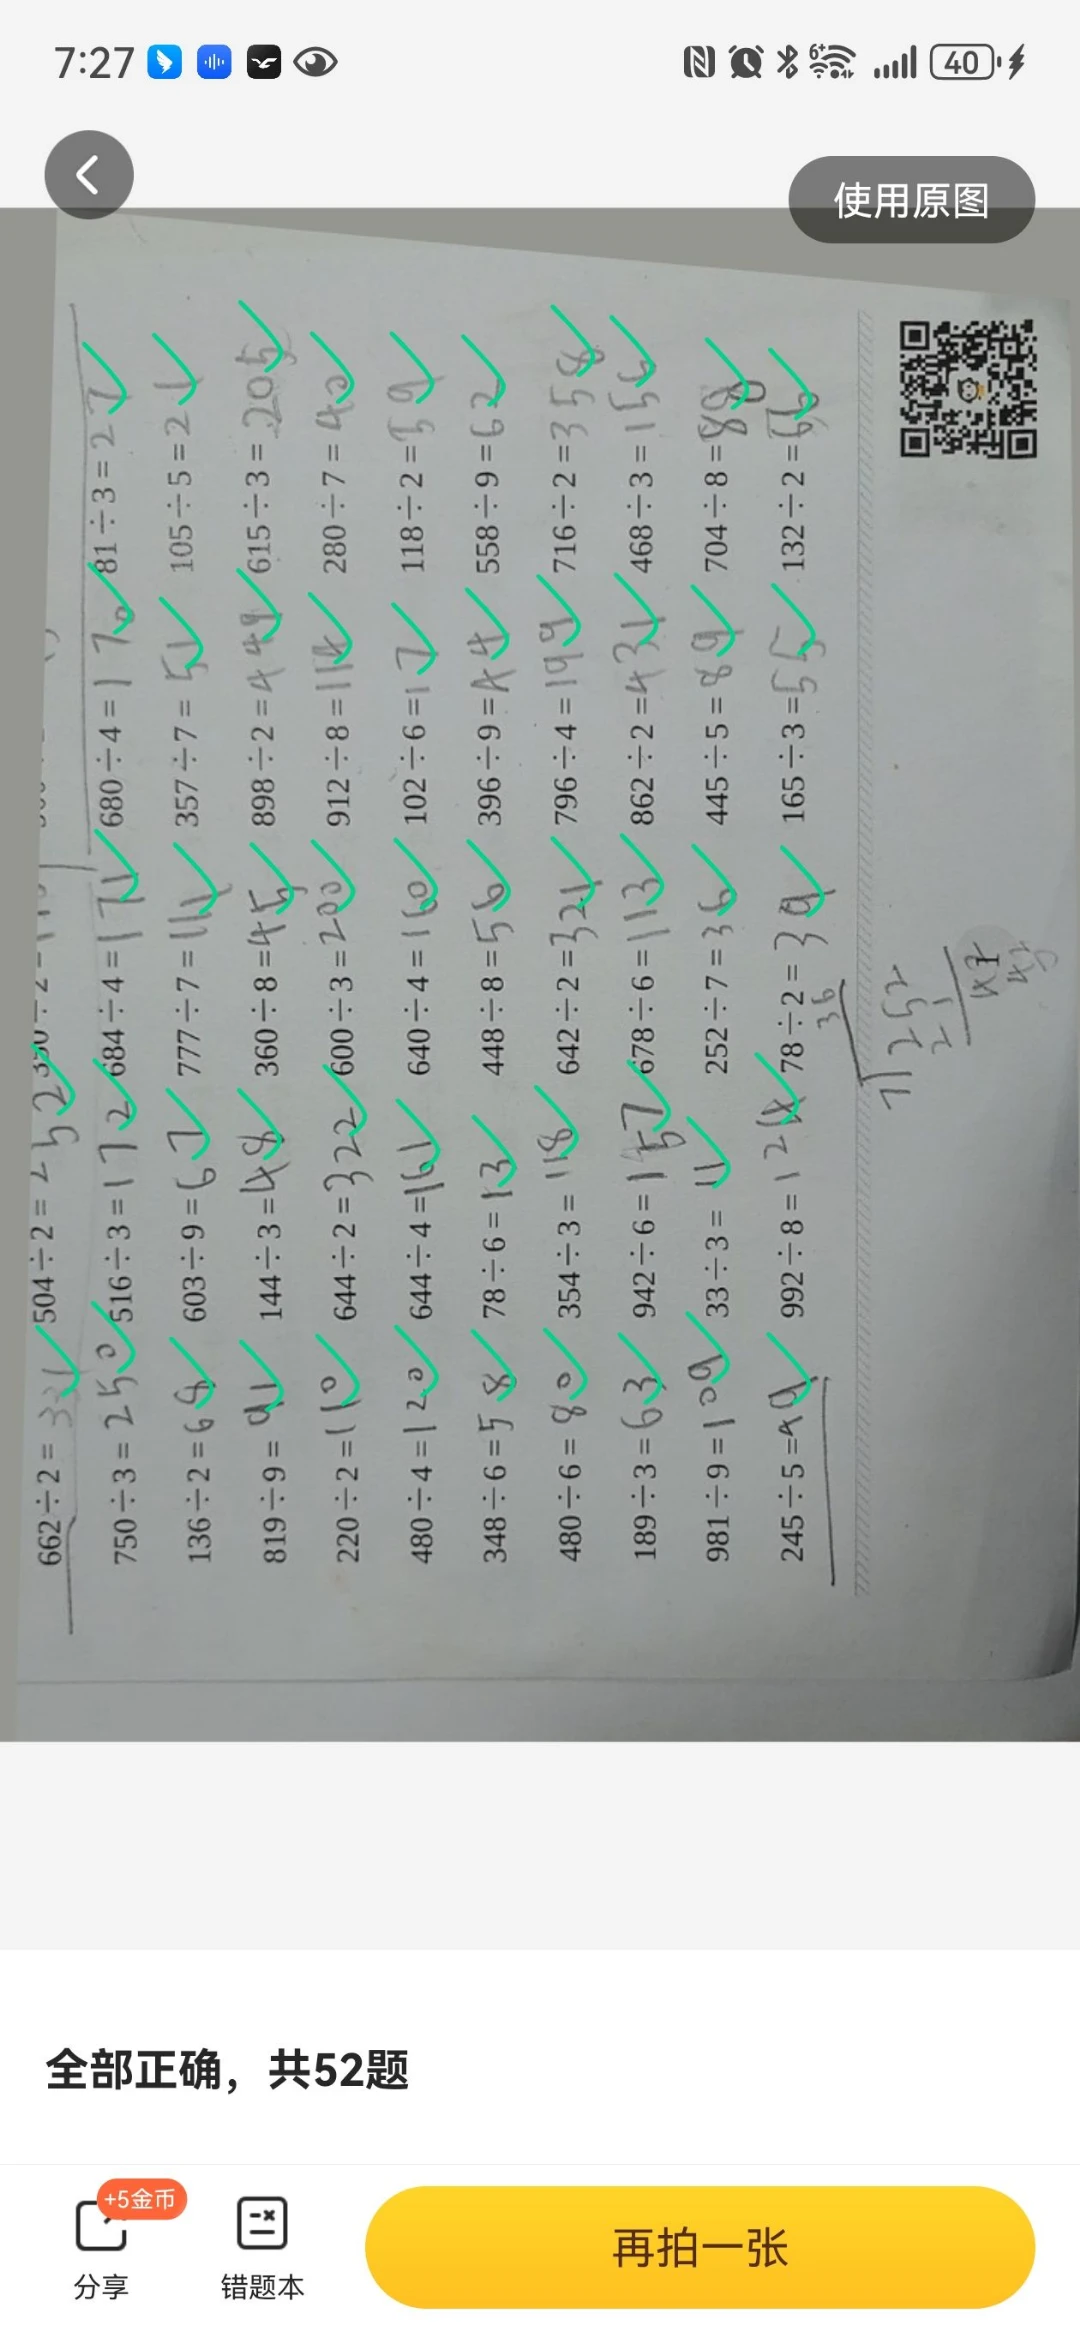 7:27
40
使用原图
662÷2=331 504÷2=252
750÷3=250 516÷3=172 684÷4=171 680÷4=170 81÷3=27
136÷2=68 603÷9=67 777÷7=111 357÷7=51 105÷5=21
819÷9=91 144÷3=48 360÷8=45 898÷2=449 615÷3=205
220÷2=110 644÷2=322 600÷3=200 912÷8=114 280÷7=40
480÷4=120 644÷4=161 640÷4=160 102÷6=17 118÷2=59
348÷6=58 78÷6=13 448÷8=56 396÷9=44 558÷9=62
480÷6=80 354÷3=118 642÷2=321 796÷4=199 716÷2=358
189÷3=63 942÷6=157 678÷6=113 862÷2=431 468÷3=156
981÷9=109 33÷3=11 252÷7=36 445÷5=89 704÷8=88
245÷5=49 992÷8=124 78÷2=39 165÷3=55 132÷2=66
36
7 252
21
42
全部正确，共52题
+5金币
分享
错题本
再拍一张